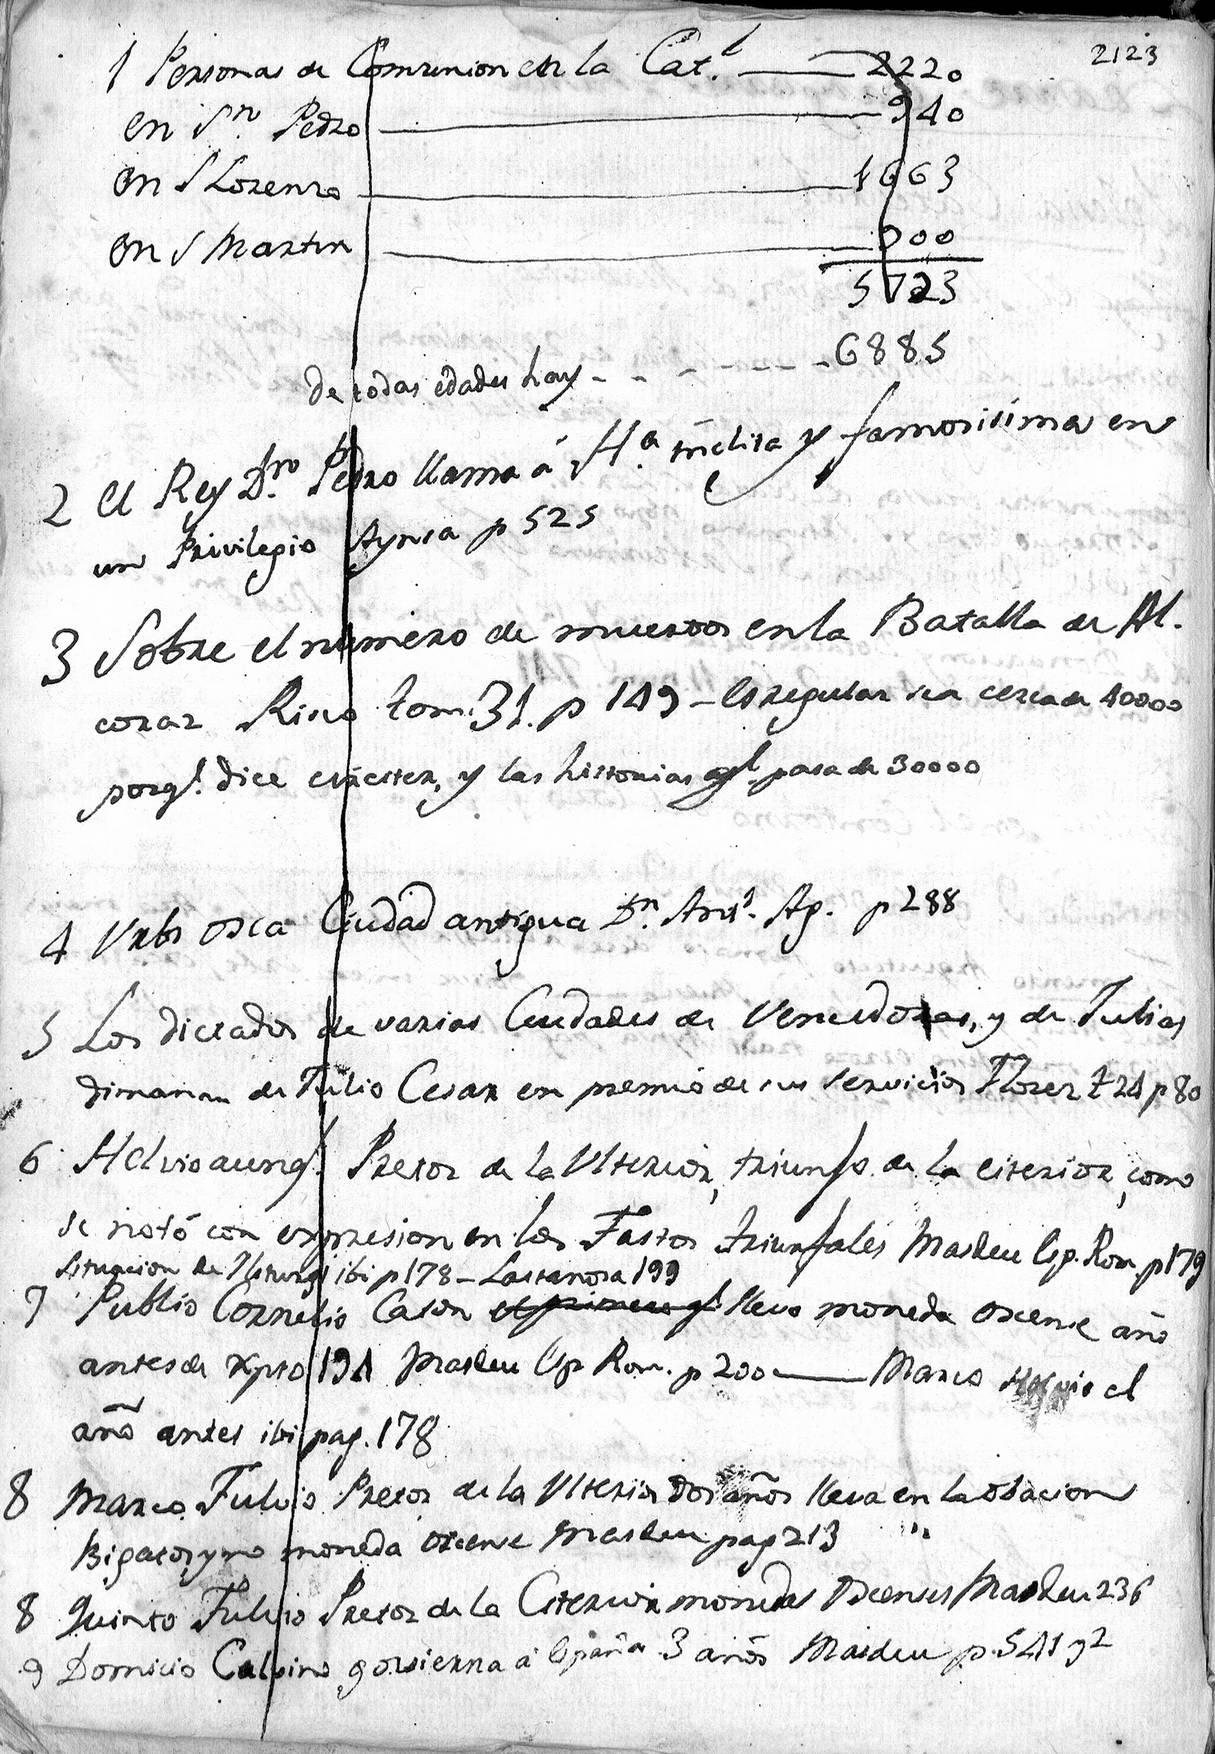 2123
1 Personas de Comunion en la Cat.l — 2220
en Sn. Pedro — 940
en S Lorenzo — 1663
en S Martin — 900
5723
De todas edades hay - - - - - - 6885
2 el Rey Dn. Pedro llama á H.a inclita y famosisima en
un Privilegio Aynsa p 525
3 Sobre el numero de muertos en la Batalla de Al.
coraz Risco tom. 31. p 149 - es regular sea cerca de 40000
porq.e dice el y las historias q.e pasa de 30000
4 Urbs osca Ciudad antigua Dn. Ant.o Ag. p 288
5 Los dictados de varias Ciudades de Vencedoras, y de Julias
dimanan de Julio Cesar en premio de sus servicios Florez t 24 p 80
6 Helvio aunq.e Pretor de la Ulterior, triunfo de la citerior, como
se notó con expresion en los Fastos triunfales Masdeu Esp. Rom p 179
Situacion de Iliturgi ibi p 178 - Lastanosa 199
7 Publio Cornelio Caton el primero q.e llevo moneda oscense año
antes de Xpto 194 Masdeu Esp Rom. p 200 — Marco Helvio el
año antes ibi pag. 178
8 Marco Fulvio Pretor de la Ulterior dos años lleva en la obacion
Bigatos y no moneda oscense Masdeu pag 213
8 Quinto Fulvio Pretor de la Citerior monedas Oscenses Masdeu 236
9 Domicio Calvino govierna á España 3 años Masdeu p. 541 y 2